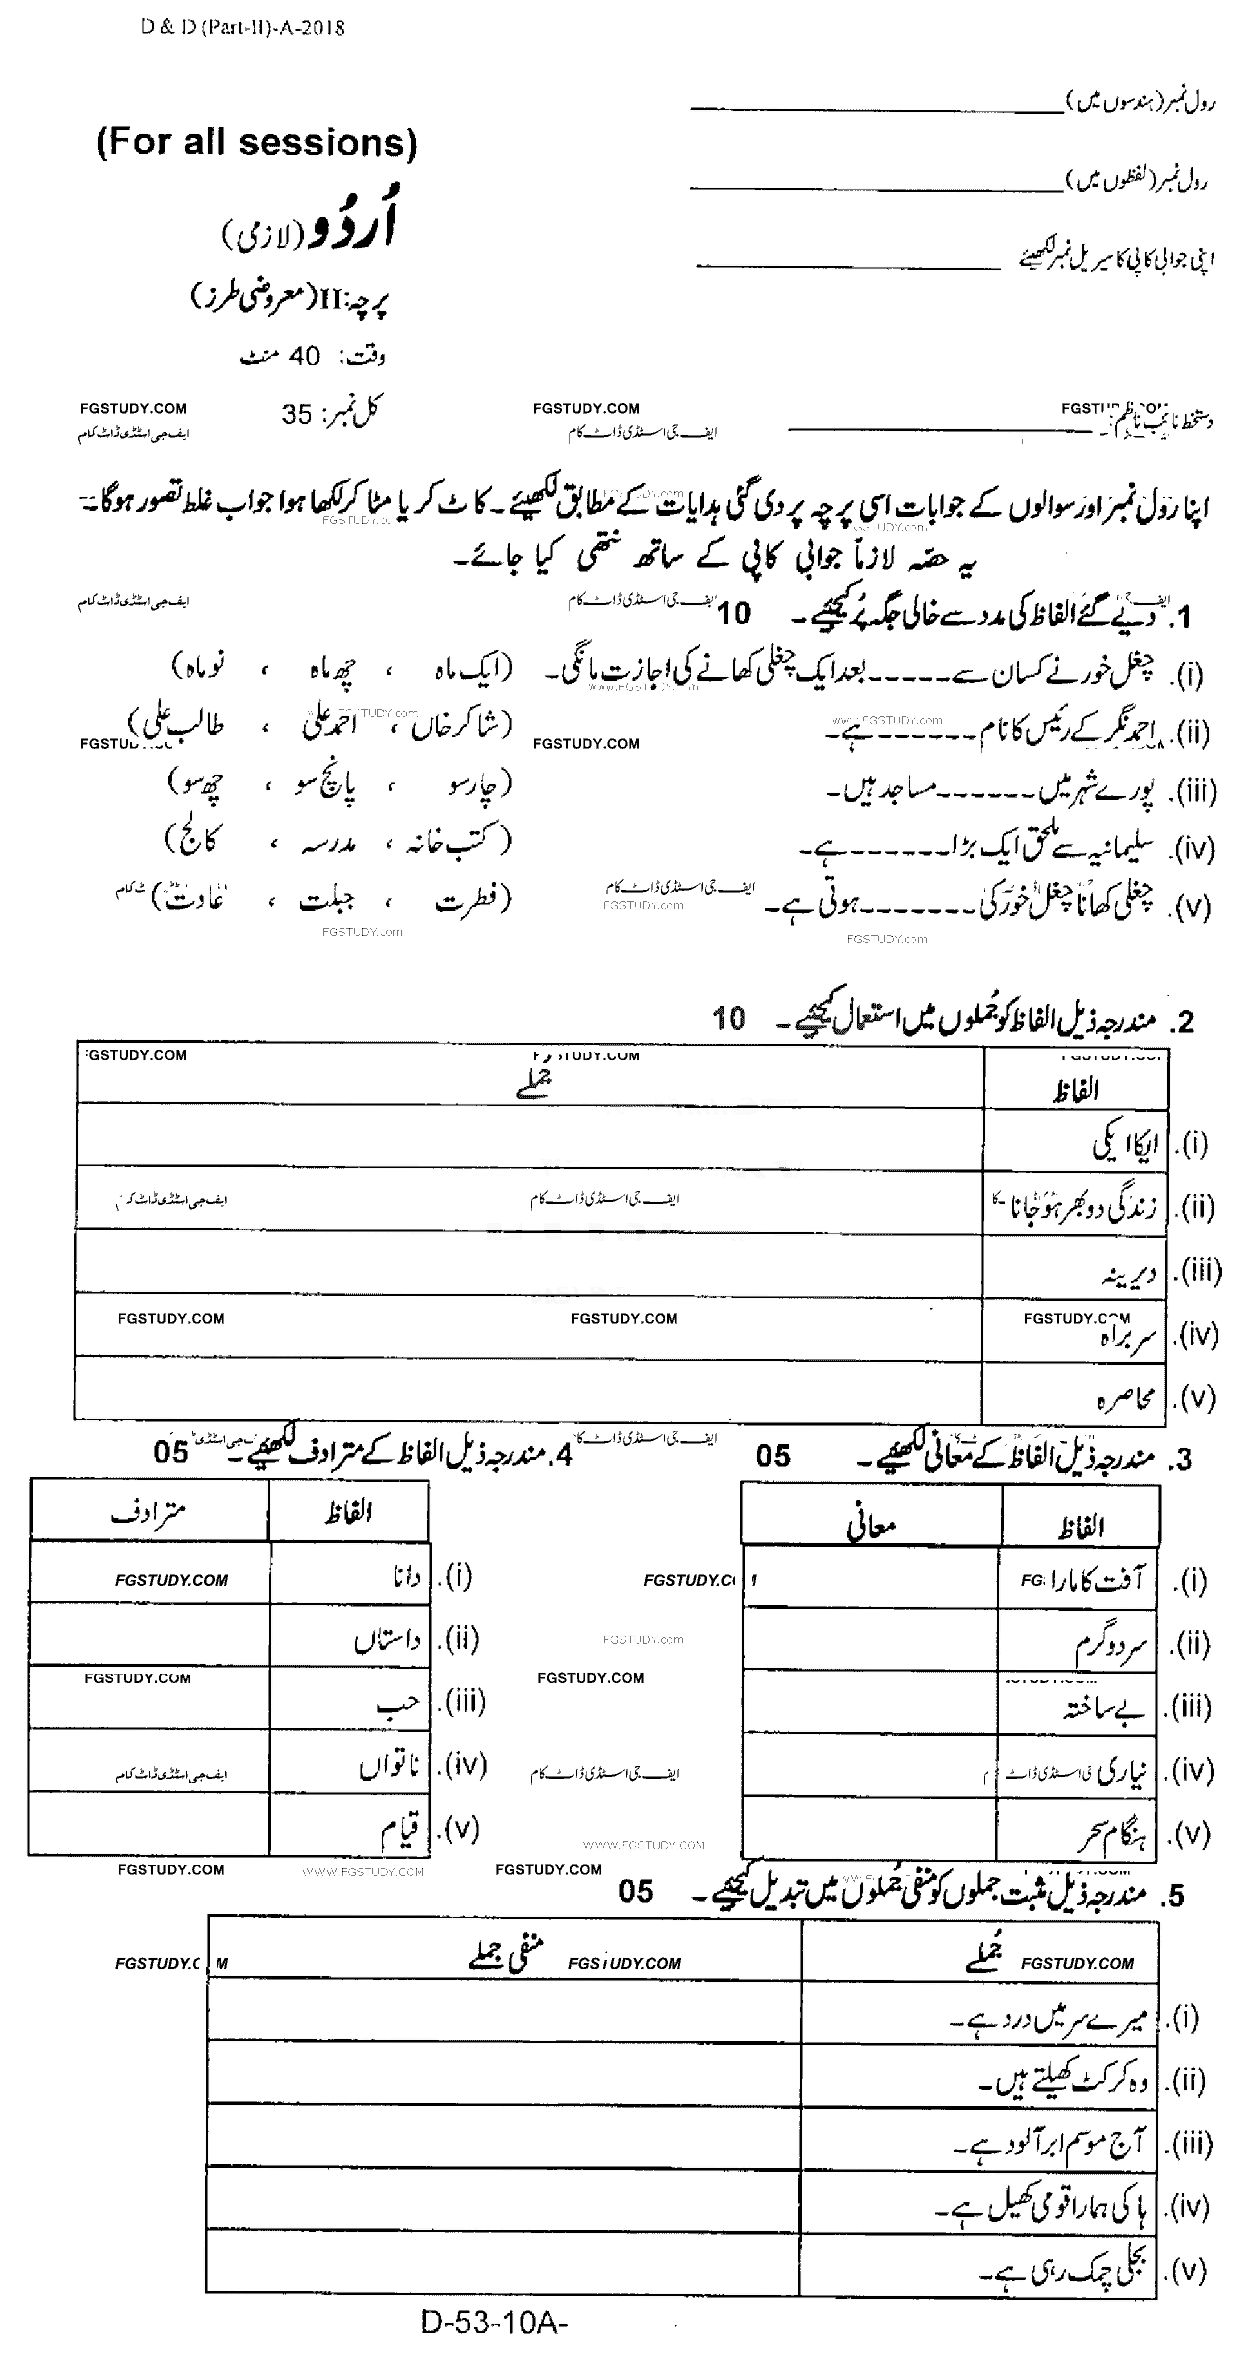 D & D (Part-II)-A-2018
رول نمبر (ہندسوں میں)
(For all sessions)
رول نمبر (لفظوں میں)
اُردُو (لازمی)
اپنی جوابی کاپی کا سیریل نمبر لکھیئے
پرچہ: II (معروضی طرز)
وقت: 40 منٹ
کل نمبر: 35
FGSTUDY.COM FGSTUDY.COM
دستخط نائب ناظم:
ایف جی اسٹڈی ڈاٹ کام ایف جی اسٹڈی ڈاٹ کام
اپنا رول نمبر اور سوالوں کے جوابات اسی پرچہ پر دی گئی ہدایات کے مطابق لکھیئے۔ کاٹ کر یا مٹا کر لکھا ہوا جواب غلط تصور ہوگا۔
یہ حصّہ لازماً جوابی کاپی کے ساتھ نتھی کیا جائے۔
1. دیے گئے الفاظ کی مدد سے خالی جگہ پُر کیجیئے۔ 10
(i). چغل خور نے کسان سے ------ بعد ایک چغلی کھانے کی اجازت مانگی۔ (ایک ماہ ، چھ ماہ ، نو ماہ)
(ii). احمد نگر کے رئیس کا نام ------ ہے۔ (شاکر خاں ، احمد علی ، طالب علی)
FGSTUDY.COM
(iii). پورے شہر میں ------ مساجد ہیں۔ (چار سو ، پانچ سو ، چھ سو)
(iv). سلیمانیہ سے ملحق ایک بڑا ------ ہے۔ (کتب خانہ ، مدرسہ ، کالج)
(v). چغلی کھانا چغل خور کی ------ ہوتی ہے۔ (فطرت ، جبلت ، عادت)
2. مندرجہ ذیل الفاظ کو جُملوں میں استعمال کیجیئے۔ 10
الفاظ جُملے
(i). ایکا ایکی
(ii). زندگی دوبھر ہو جانا
(iii). دیرینہ
FGSTUDY.COM FGSTUDY.COM FGSTUDY.COM
(iv). سربراہ
(v). محاصرہ
3. مندرجہ ذیل الفاظ کے معانی لکھیئے۔ 05
الفاظ معانی
(i). آفت کا مارا
(ii). سرد و گرم
(iii). بے ساختہ
(iv). نیاری
(v). ہنگامِ سحر
4. مندرجہ ذیل الفاظ کے مترادف لکھیئے۔ 05
الفاظ مترادف
(i). دانا
(ii). داستاں
(iii). حب
(iv). ناتواں
(v). قیام
FGSTUDY.COM WWW.FGSTUDY.COM FGSTUDY.COM
5. مندرجہ ذیل مثبت جملوں کو منفی جُملوں میں تبدیل کیجیئے۔ 05
جُملے منفی جملے
(i). میرے سر میں درد ہے۔
(ii). وہ کرکٹ کھیلتے ہیں۔
(iii). آج موسم ابر آلود ہے۔
(iv). ہاکی ہمارا قومی کھیل ہے۔
(v). بجلی چمک رہی ہے۔
D-53-10A-